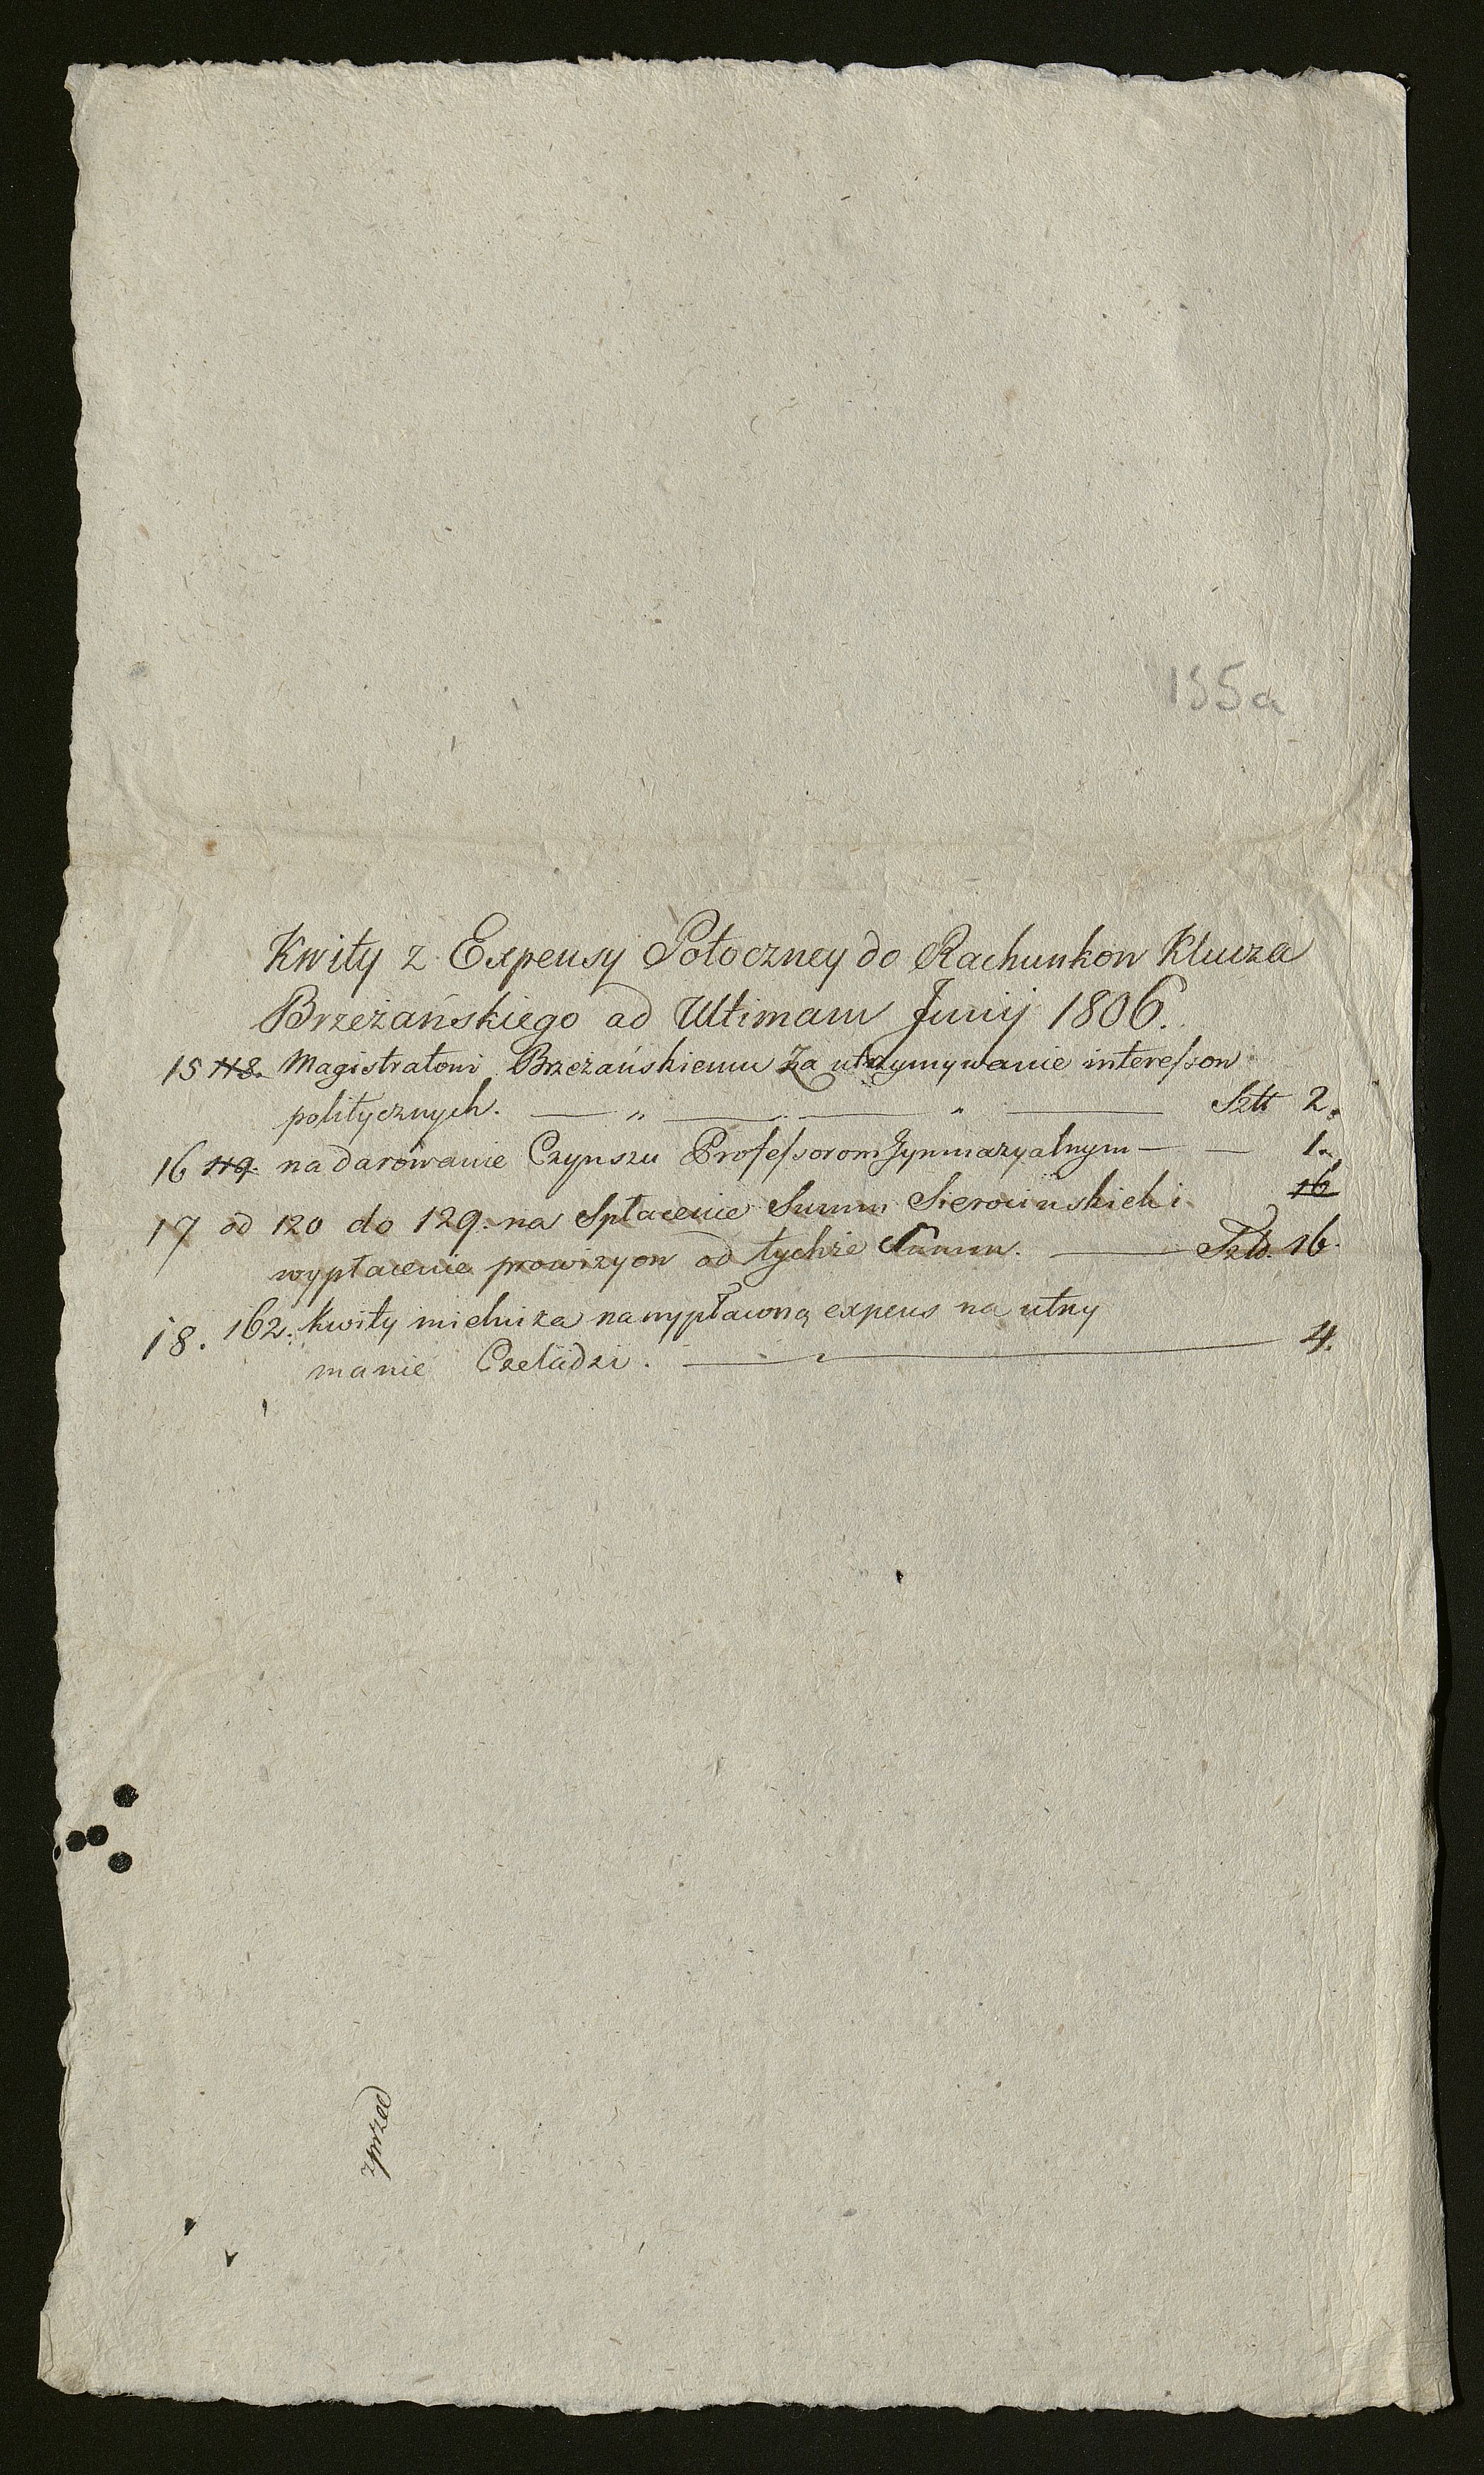 155a
Kwity z Expensy Potoczney do Rachunkow Klucza
Brzeżańskiego ad Ultimam Junij 1806.
15 118. Magistratowi Brzeżańskiemu Za utrzymywanie interessow
politycznych. — „ — — „ — Sztt 2.
16 119. na darowanie Czynszu Professorom Gymnazyalnym — — 1.
16
17 od 120 do 129. na Spłacenie Summ Sierocinskich i
wypłacenie prowizyow od tychże Summ. — Szto. 16.
18. 162. Kwity mielnika na wypłaconą expens na utrzy
manie Czeladzi. — 4.
zprzed